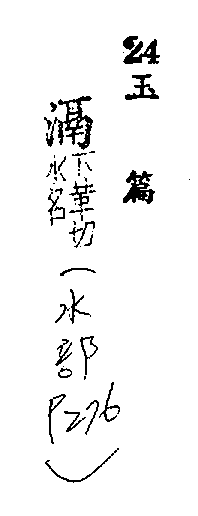 24
玉篇
滆 下革切 水名 (水部 P276)